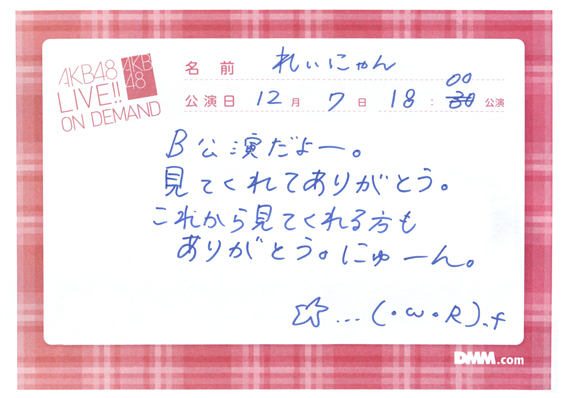 AKB48
LIVE!!
ON DEMAND
AKB
48
名前 れいにゃん
00
公演日 12月 7日 18:30公演
B公演だよー。
見てくれてありがとう。
これから見てくれる方も
ありがとう。にゅーん。
☆...(・ω・R).f
DMM.com